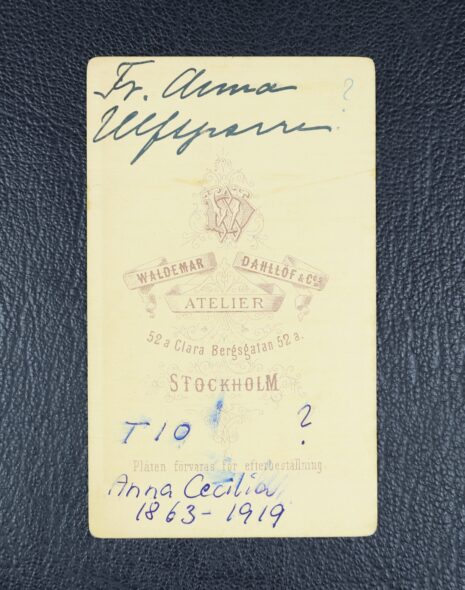 Fr. Anna ?
Ulfsparre
WD
WALDEMAR DAHLLÖF & Co.
ATELIER
52a Clara Bergsgatan 52a.
STOCKHOLM
T 10 ?
Plåten förvaras för efterbeställning
Anna Cecilia
1863-1919